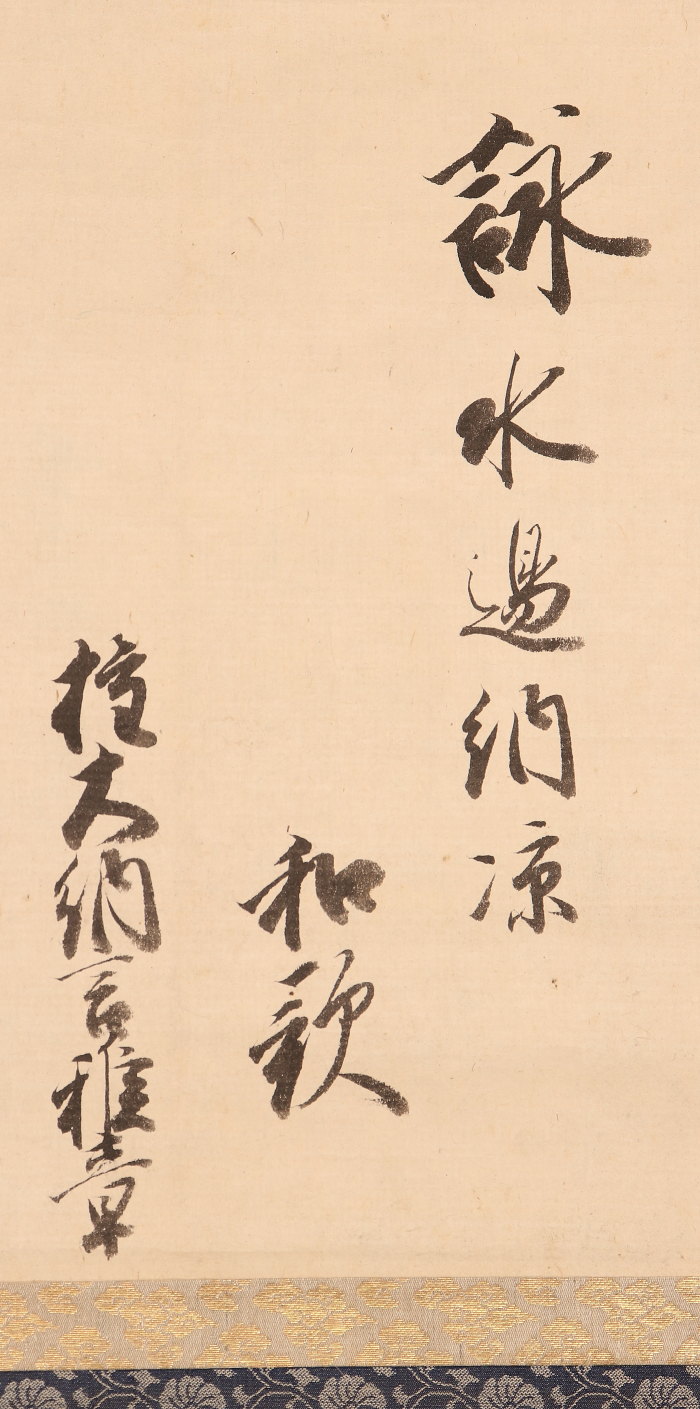 詠水邊納凉
和歌
權大納言雅章